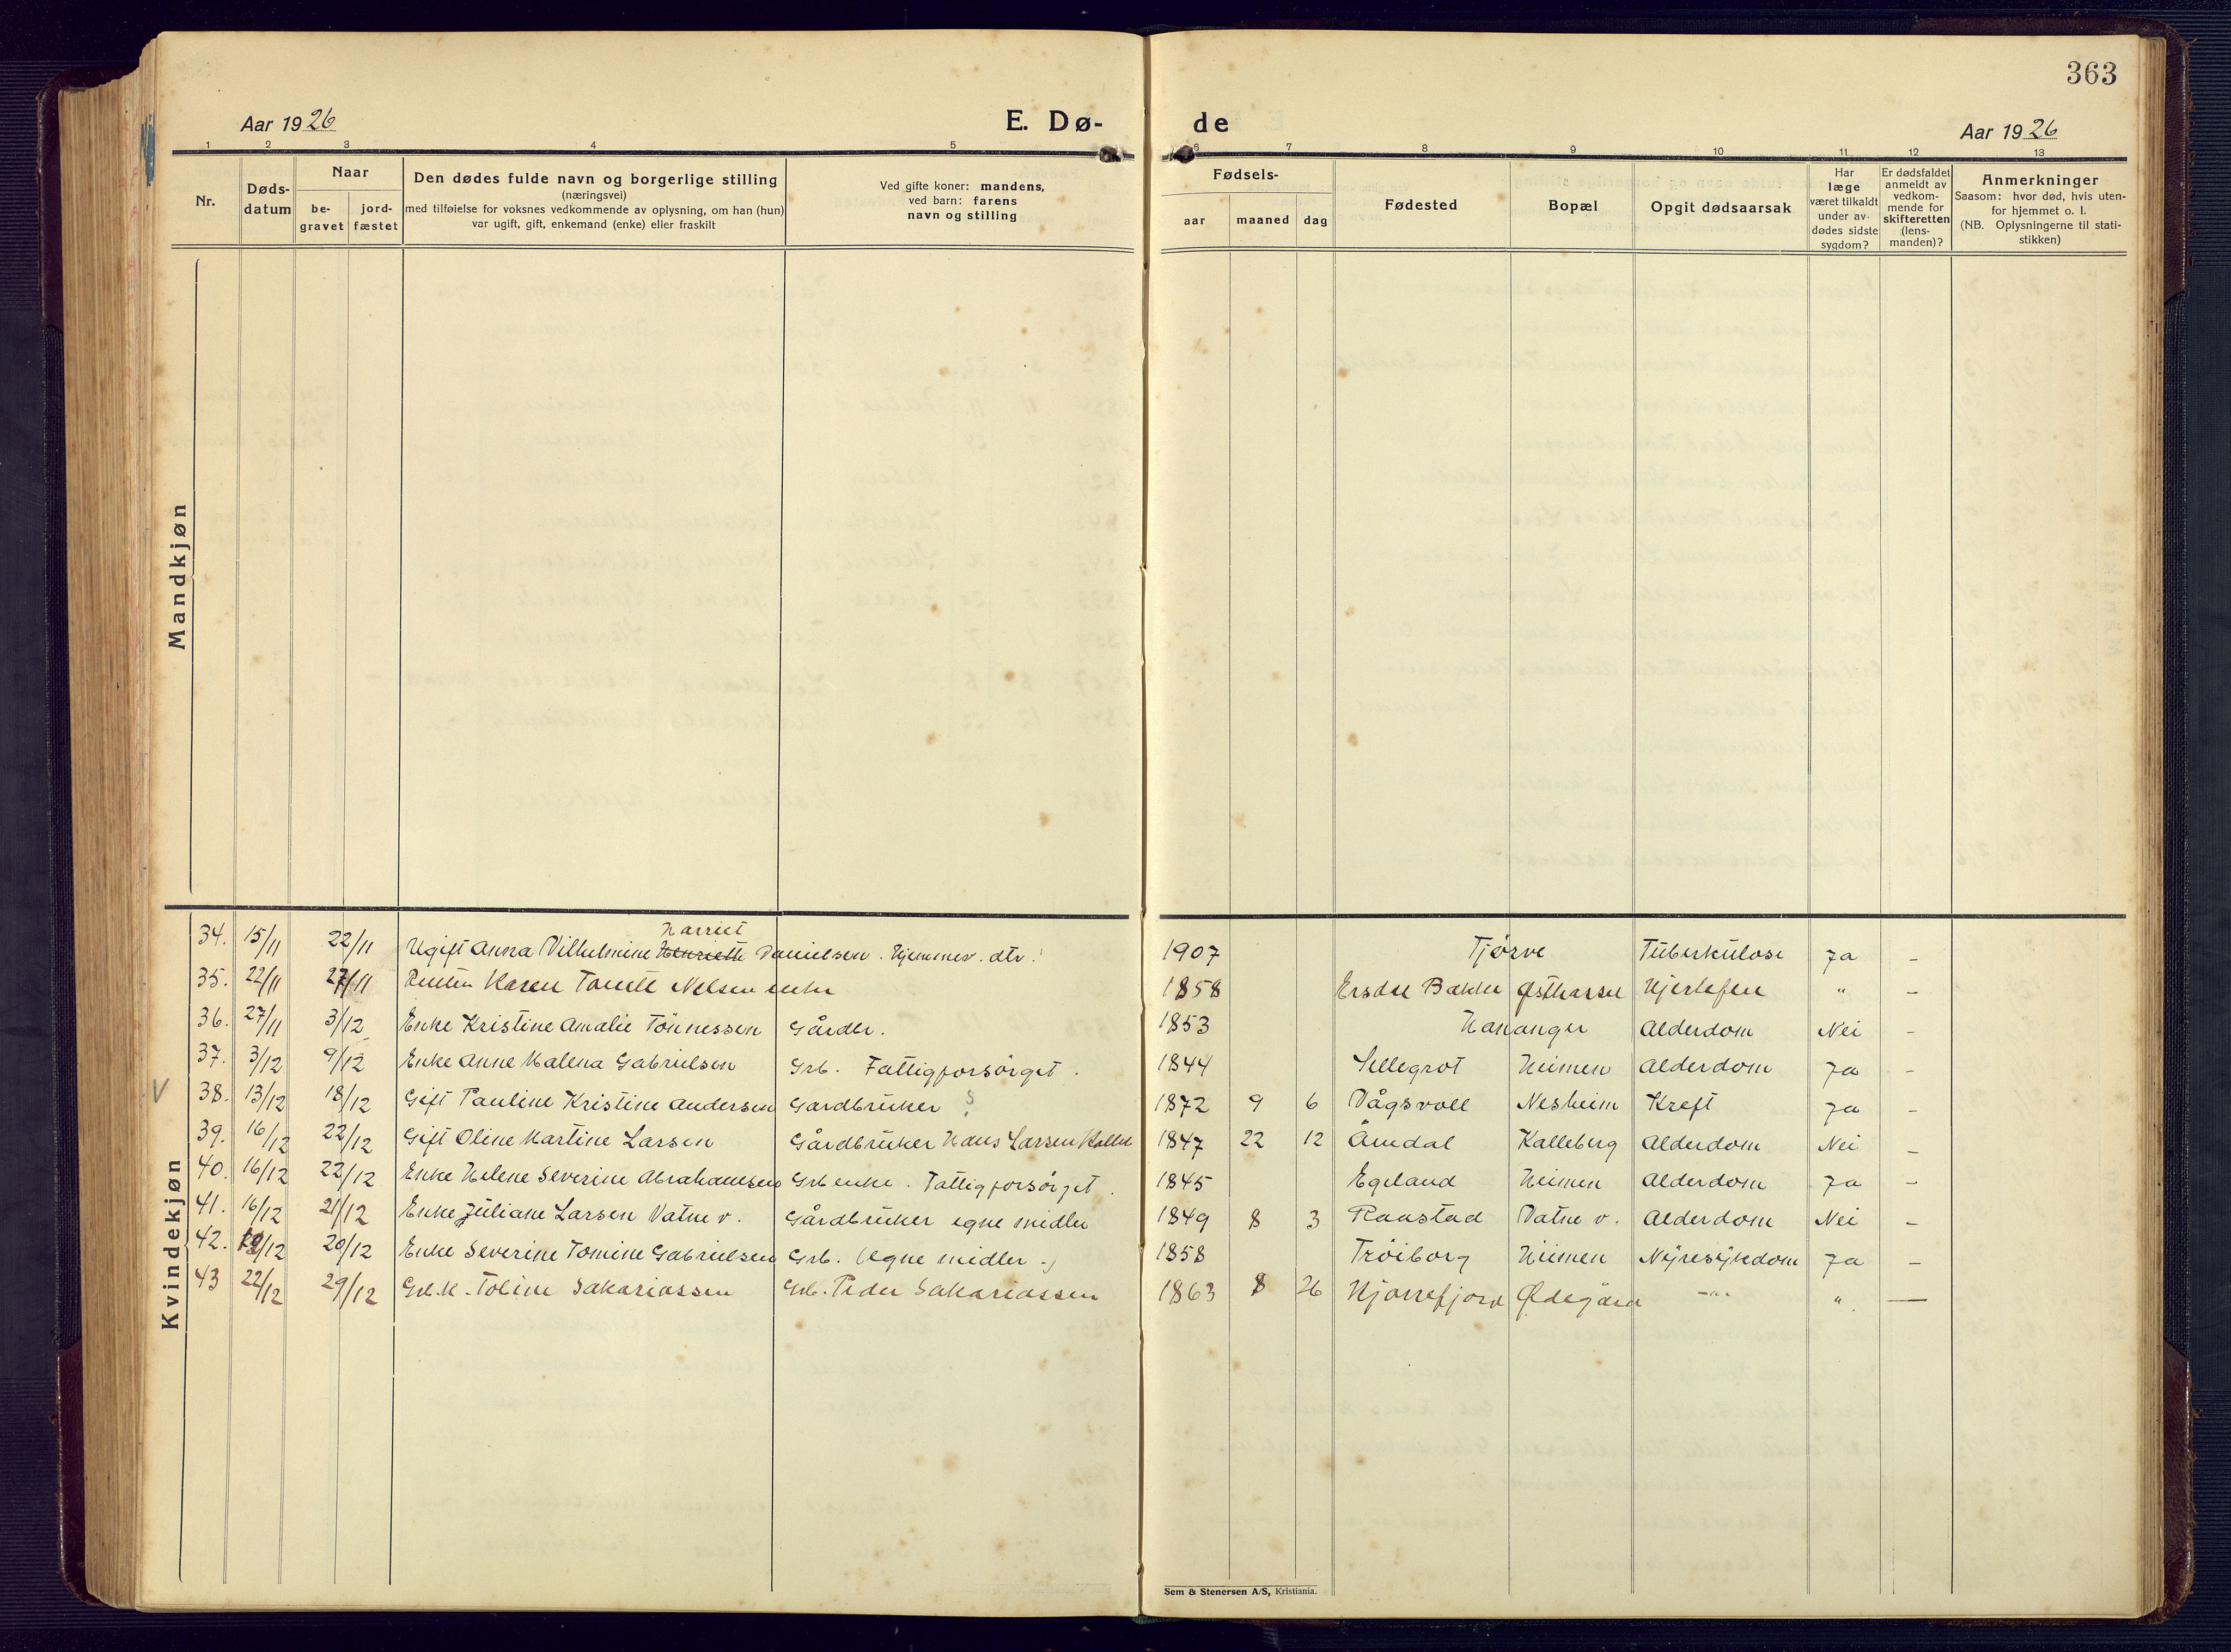 363
Aar 1926
E. Dø-
de
Aar 1926
1 2 3 4 5 6 7 8 9 10 11 12 13
Nr.
Døds-
datum
Naar
be-
gravet
jord-
fæstet
Den dødes fulde navn og borgerlige stilling
(næringsvei)
med tilføielse for voksnes vedkommende av oplysning, om han (hun)
var ugift, gift, enkemand (enke) eller fraskilt
Ved gifte koner: mandens,
ved barn: farens
navn og stilling
Fødsels-
aar
maaned
dag
Fødested
Bopæl
Opgit dødsaarsak
Har
læge
været tilkaldt
under av-
dødes sidste
sygdom?
Er dødsfaldet
anmeldt av
vedkom-
mende for
skifteretten
(lens-
manden)?
Anmerkninger
Saasom: hvor død, hvis uten-
for hjemmet o. l.
(NB. Oplysningerne til stati-
stikken)
Mandkjøn
Kvindekjøn
Harriet
34. 15/11 22/11 Ugift Anna Vilhelmine Henriette Danielsen. Hjemmev. dtr. 1907 Tjørve Tuberkulose Ja -
35. 22/11 27/11 Karen Tomette Nelsen enke 1858 Ersdal Bakke Østhassel Hjertefeil " -
36. 27/11 3/12 Enke Kristine Amalie Tönnessen Gårdbr. 1853 Hananger Alderdom Nei -
37. 3/12 9/12 Enke Anne Malena Gabrielsen Grb. Fattigforsörget. 1844 Sellegrot Heimen Alderdom Ja -
V 38. 13/12 18/12 Gift Pauline Kristine Andersen Gardbruker ? 1872 9 6 Vågsvoll Nesheim Kreft Ja -
39. 16/12 22/12 Gift Oline Martine Larsen Gårdbruker Hans Larsen Kalleb 1847 22 12 Åmdal Kalleberg Alderdom Nei -
40. 16/12 22/12 Enke Helene Severine Abrahamsen Grb enke. Fattigforsörget. 1845 Egeland Heimen Alderdom Ja -
41. 16/12 21/12 Enke Juliane Larsen Vatne v. Gårdbruker egne midler 1849 8 3 Raastad Vatne v. Alderdom Nei -
42. 12/12 20/12 Enke Severine Tomine Gabrielsen Grb. (egne midler.) 1858 Tröiborg Heimen Nyresykdom Ja -
43 22/12 29/12 G.k. Toline Sakariassen Grb. Peder Sakariassen 1863 8 26 Hjörrefjord Ødegård -"- " —
Sem & Stenersen A/S, Kristiania.